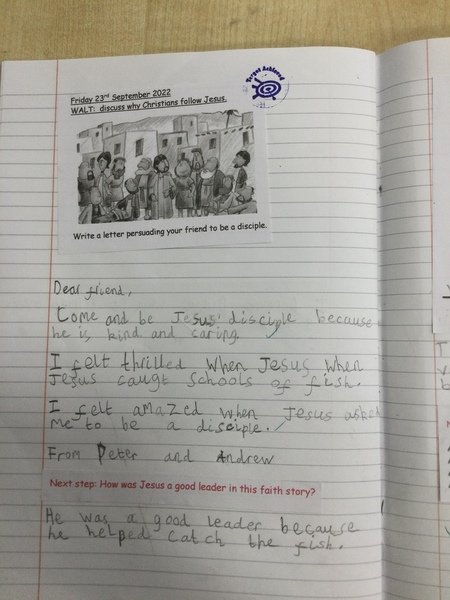 Target Achieved
Friday 23rd September 2022
WALT: discuss why Christians follow Jesus.
Write a letter persuading your friend to be a disciple.
Dear friend,
Come and be Jesus' disciple because
he is kind and caring.
I felt thrilled when Jesus when
Jesus caugt schools of fish.
I felt amazed when Jesus asked
me to be a disciple.
From Peter and Andrew
Next step: How was Jesus a good leader in this faith story?
He was a good leader because
he helped catch the fish.